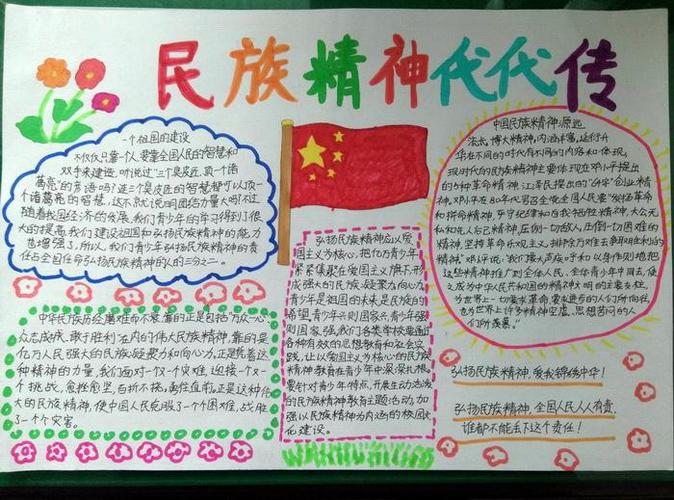 民族精神代代传
一个祖国的建设
不仅仅只靠一个人,要靠全国人民的智慧和
双手来建造,听说过“三个臭皮匠,顶一个诸
葛亮”的常语吗?连三个臭皮匠的智慧都可以顶一
个诸葛亮的智慧,这不就说明团结力量大吗?不过
随着我国经济的发展,我们青少年的学习得到了很
大的提高,我们建设祖国和弘扬民族精神的能力
也增强了,所以,我们青少年弘扬民族精神的责
任占全国任命弘扬民族精神的人的三分之二。
中华民族历经磨难而不衰,靠的正是包括万众一心
众志成城、敢于胜利在内的伟大民族精神,靠的是
亿万人民强大的民族凝聚力和向心力。正是凭着这
种精神的力量,我们面对一次个灾难,迎接一次一
个挑战,愈挫愈坚,百折不挠,勇往直前。正是这种伟
大的民族精神,使中国人民克服了一个个困难,战胜
了一个个灾害。
弘扬民族精神应以爱
国主义为核心,把亿万青少年
紧紧集聚在爱国主义旗下,形
成强大的民族凝聚力和向心力
青少年是祖国的未来,是民族的
希望,青少年兴则国家兴,青少年强
则国家强。我们各类学校要通过
各种有效的思想教育和社会实
践,让以爱国主义为核心的民族
精神教育在青少年中深深扎根。
要针对青少年特点,开展生动活泼
的民族精神教育主题活动,加
强以民族精神为内涵的校园文
化建设。
中国民族精神,源远
流长,博大精深,内涵丰富,延衍升
华在不同的时代有不同的内容和体现。
现时代的民族精神主要体现在邓小平提出
的5种革命精神,江泽民提出的“64字”创业精
神。邓小平在80年代号召全党全国人民要“发扬革命
和拼命精神,严守纪律和自我牺牲精神,大公无
私和先人后己精神,压倒一切敌人、压倒一切困难的
精神,坚持革命乐观主义、排除万难去争取胜利的
精神”邓评说:“我们要大声疾呼和以身作则地把
这些精神推广到全体人民、全体青少年中间去,使
之成为中华人民共和国的精神文明的主要支柱,
为世界上一切要求革命、要求进步的人们所向往,
也为世界上许多精神空虚、思想苦闷的人
们所羡慕。”
弘扬民族精神,爱我锦绣中华!
弘扬民族精神,全国人民人人有责,
谁都不能丢下这个责任!